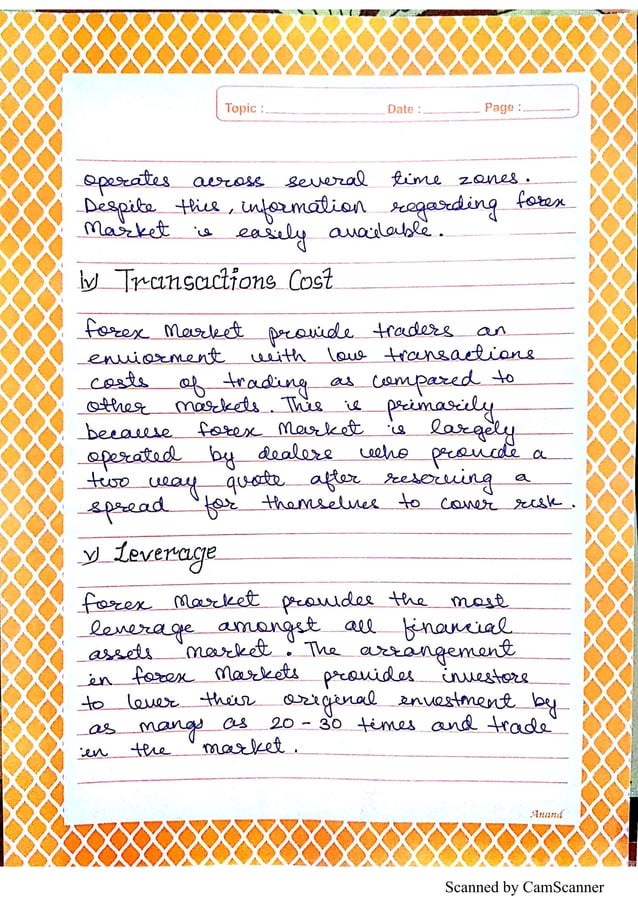 Topic : Date : Page :
operates across several time zones.
Despite this, information regarding forex
Market is easily available.
iv) Transactions Cost
forex Market provide traders an
enviorment with low transactions
costs of trading as compared to
other markets. This is primarily
because forex Market is largely
operated by dealers who provide a
two way quote after reserving a
spread for themselves to cover risk.
v) Leverage
forex Market provides the most
leverage amongst all financial
assets market. The arrangement
in forex Markets provides investors
to lever their original investment by
as many as 20-30 times and trade
in the market.
Anand
Scanned by CamScanner